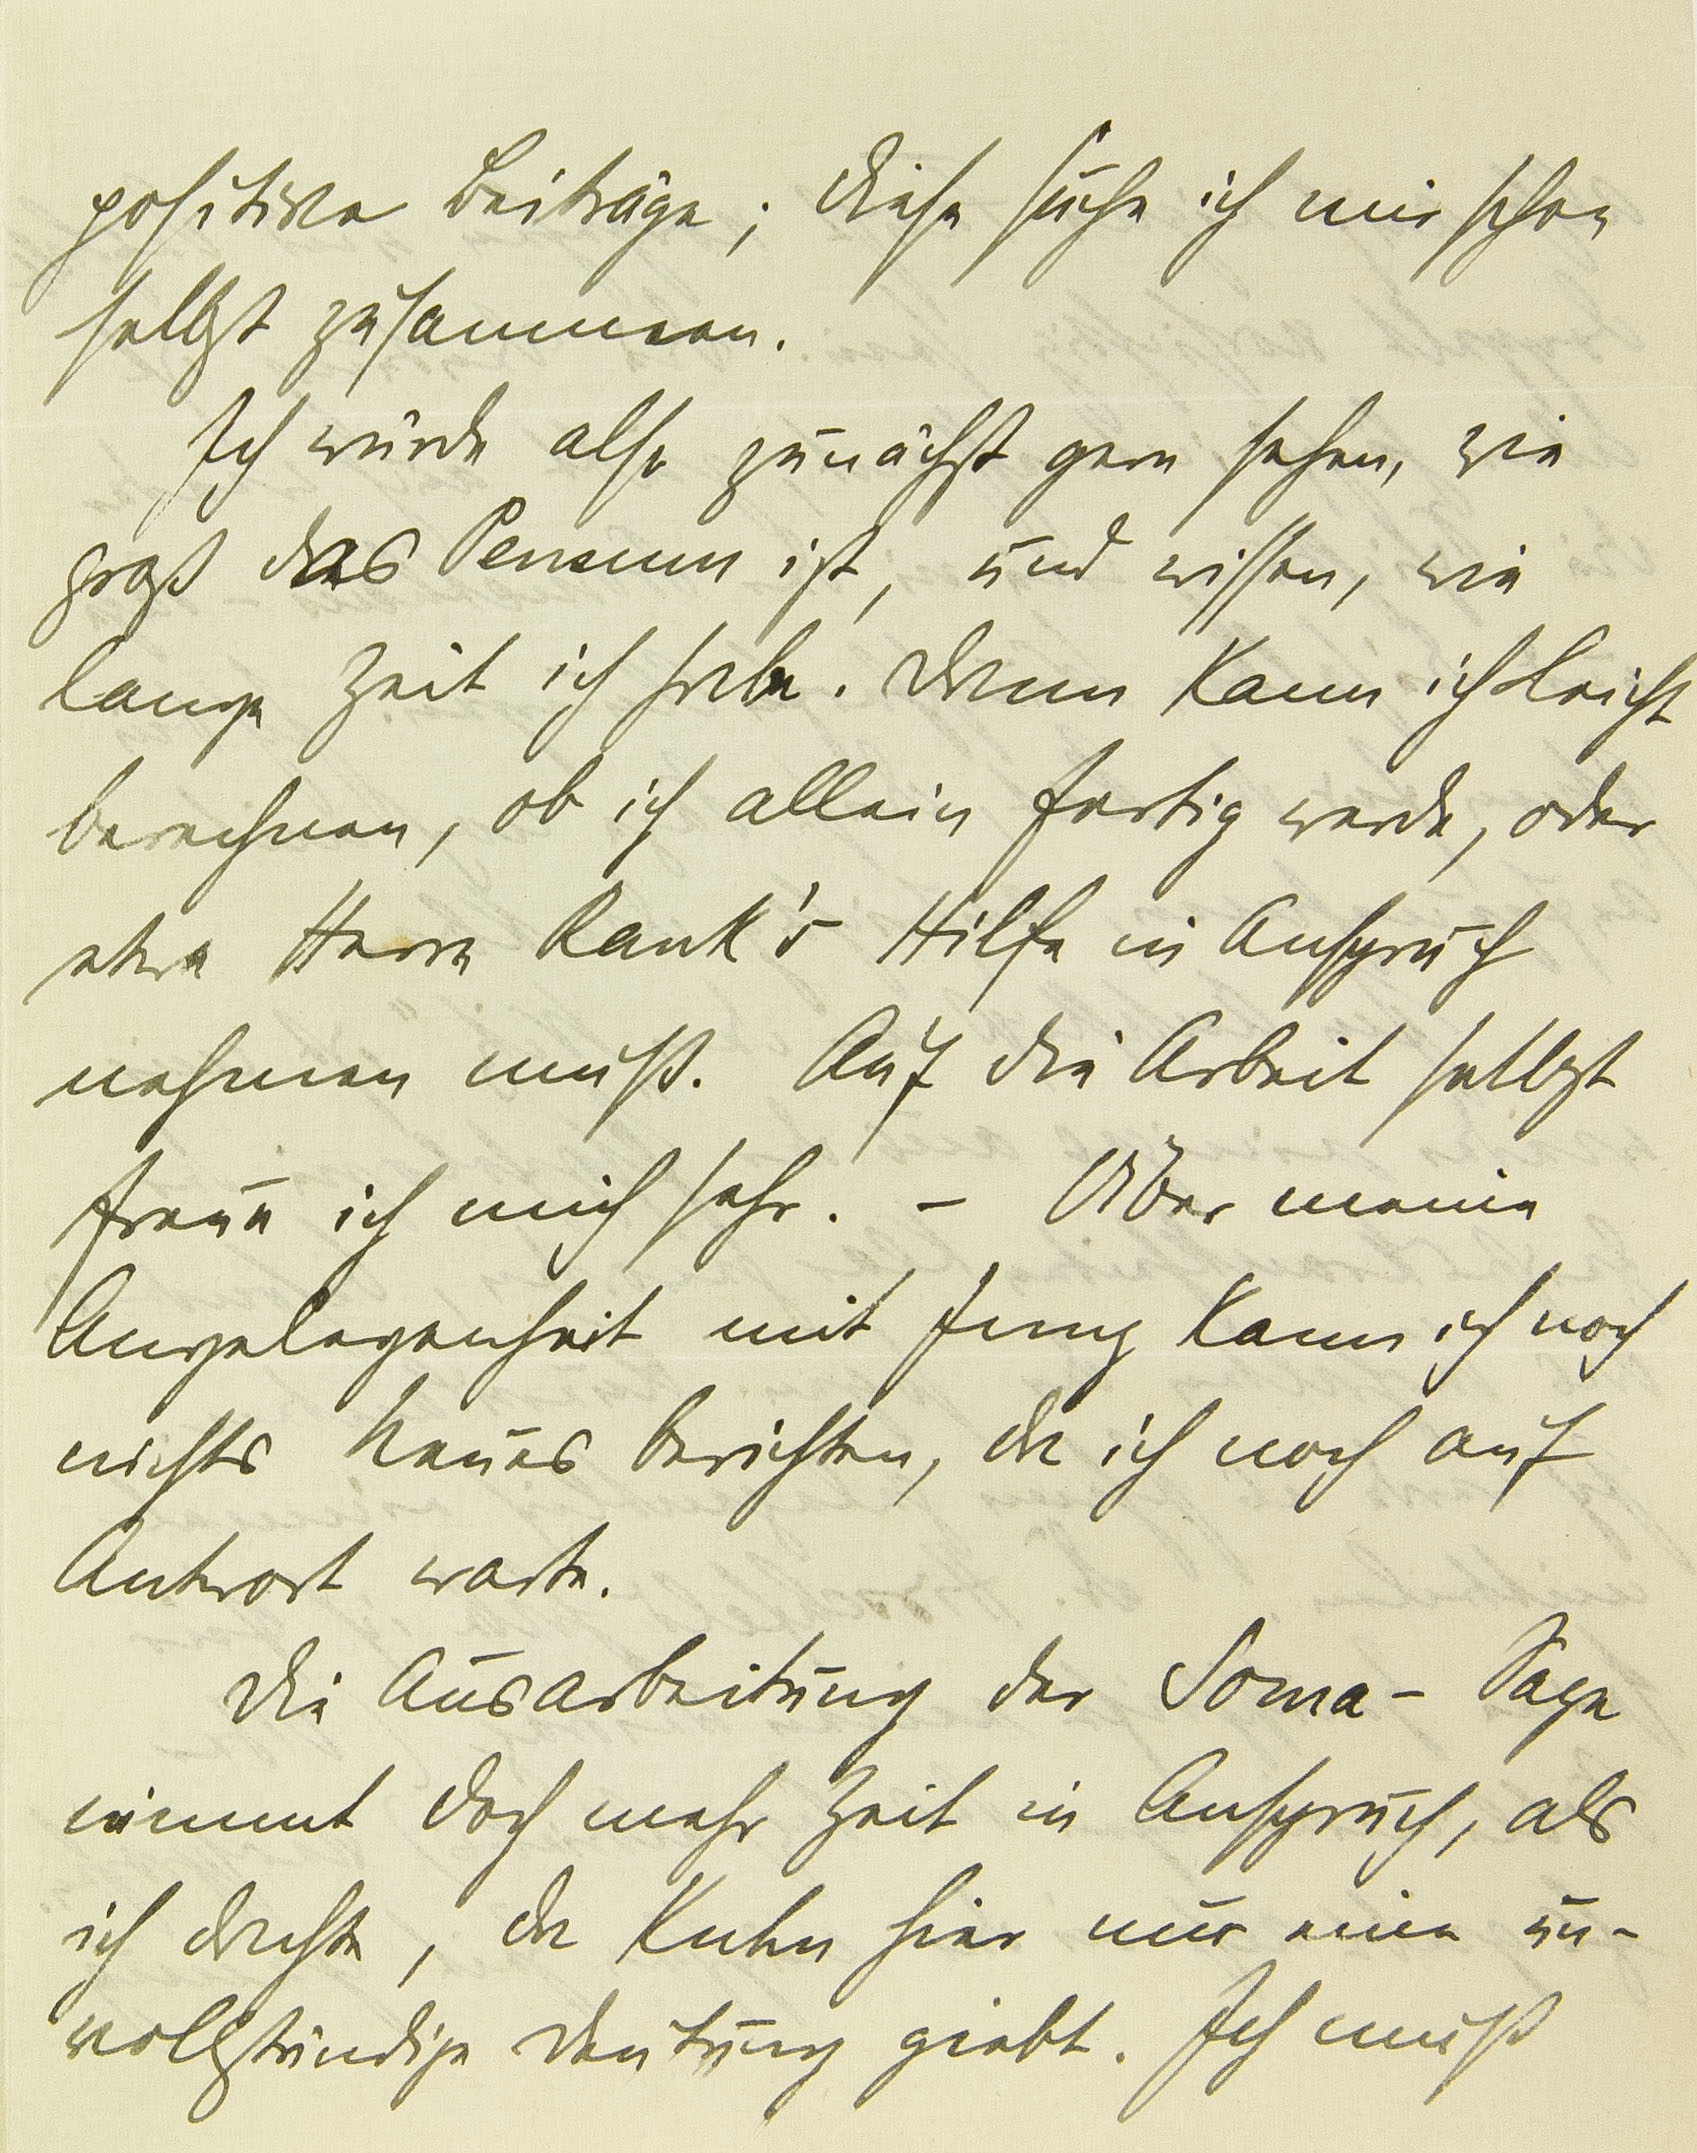 positive Beiträge; diese suche ich mir schon
selbst zusammen.
Ich würde also zunächst gern sehen, wie
groß das Pensum ist, und wissen, wie
lange Zeit ich habe. Dann kann ich leicht
berechnen, ob ich allein fertig werde, oder
etwa Herrn Rank's Hilfe in Anspruch
nehmen muß. Auf die Arbeit selbst
freue ich mich sehr. – Über meine
Angelegenheit mit Jung kann ich noch
nichts Neues berichten, da ich noch auf
Antwort warte.
Die Ausarbeitung der Soma-Sage
nimmt doch mehr Zeit in Anspruch, als
ich dachte, da Kuhn hier nur eine un-
vollständige Deutung giebt. Ich muß